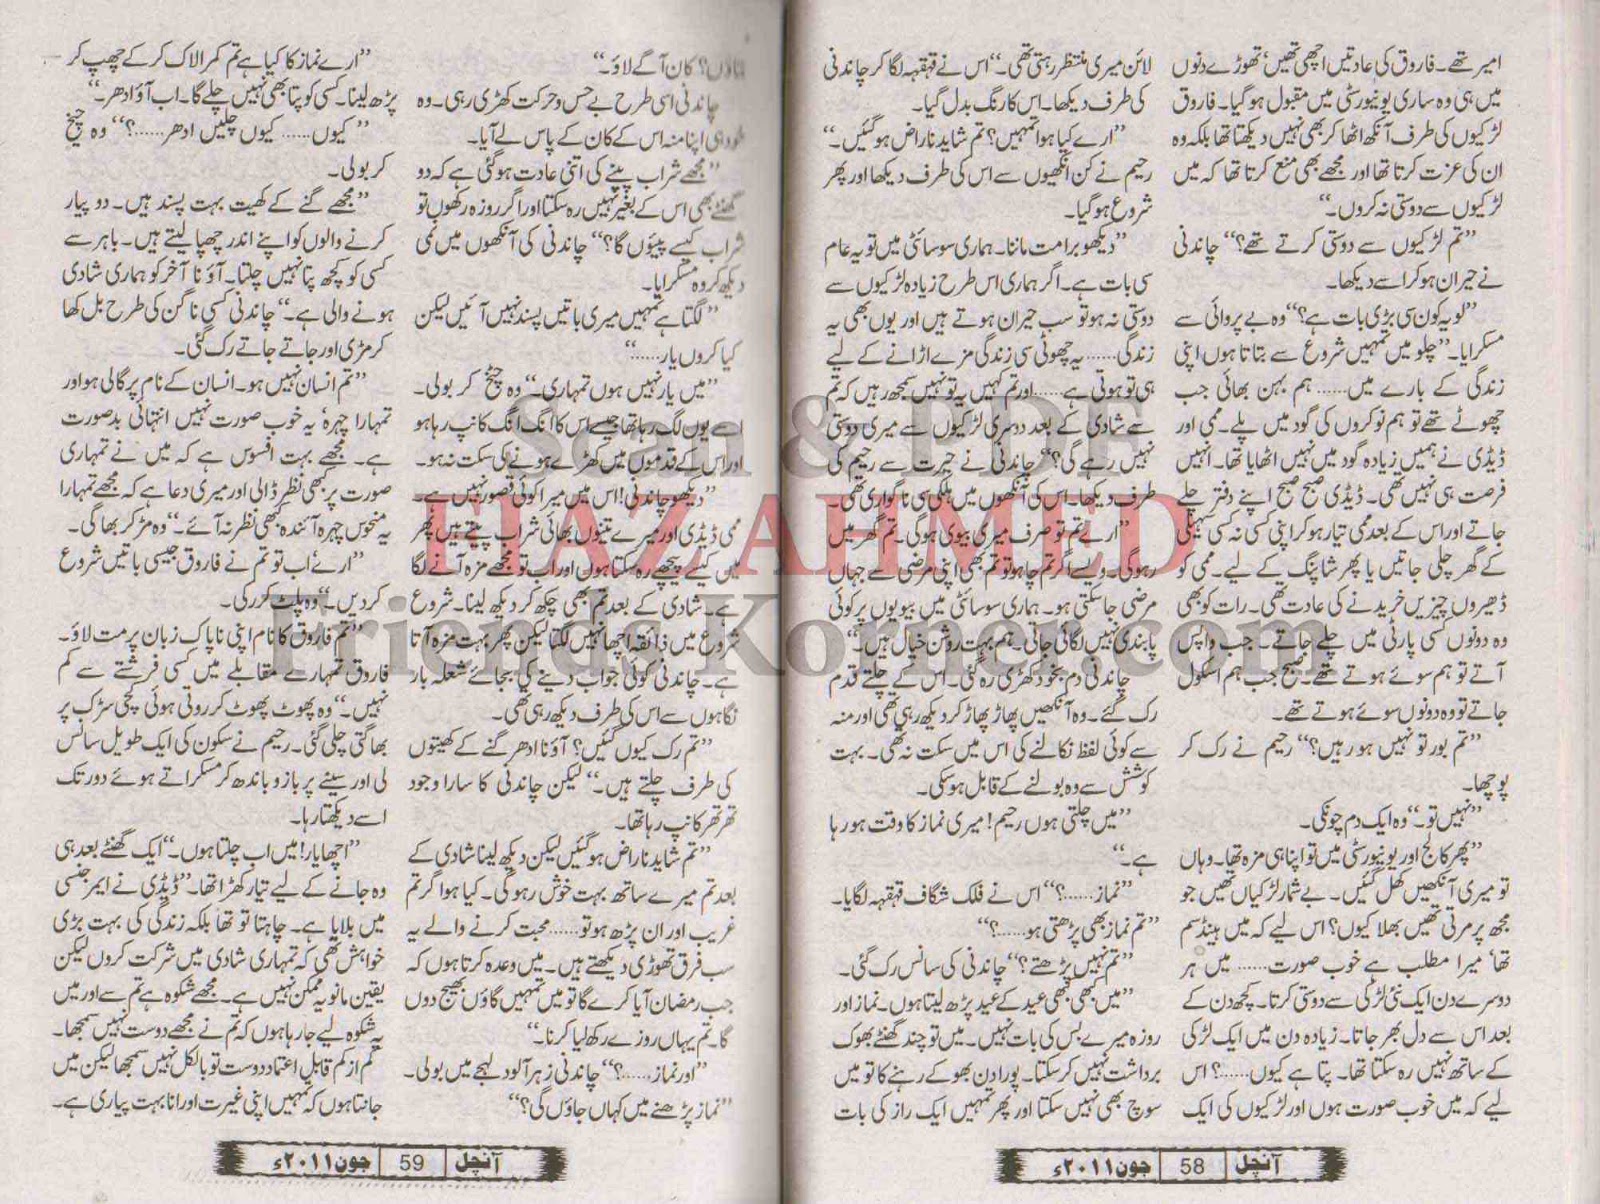 امیر تھے۔ فاروق کی عادتیں اچھی تھیں، تھوڑے دنوں
میں ہی وہ ساری یونیورسٹی میں مقبول ہو گیا۔ فاروق
لڑکیوں کی طرف آنکھ اٹھا کر بھی نہیں دیکھتا تھا بلکہ وہ
ان کی عزت کرتا تھا اور مجھے بھی منع کرتا تھا کہ میں
لڑکیوں سے دوستی نہ کروں۔“
”تم لڑکیوں سے دوستی کرتے تھے؟“ چاندنی
نے حیران ہو کر اسے دیکھا۔
”لو یہ کون سی بڑی بات ہے؟“ وہ بے پروائی سے
مسکرایا۔ ”چلو میں تمہیں شروع سے بتاتا ہوں اپنی
زندگی کے بارے میں...... ہم بہن بھائی جب
چھوٹے تھے تو ہم نوکروں کی گود میں پلے۔ ممی اور
ڈیڈی نے ہمیں زیادہ گود میں نہیں اٹھایا تھا۔ انہیں
فرصت ہی نہیں تھی۔ ڈیڈی صبح صبح اپنے دفتر چلے
جاتے اور اس کے بعد ممی تیار ہو کر اپنی کسی نہ کسی سہیلی
کے گھر چلی جاتیں یا پھر شاپنگ کے لیے۔ ممی کو
ڈھیروں چیزیں خریدنے کی عادت تھی۔ رات کو بھی
وہ دونوں کسی پارٹی میں چلے جاتے۔ جب واپس
آتے تو ہم سوئے ہوتے تھے۔ صبح جب ہم اسکول
جاتے تو وہ دونوں سوئے ہوتے تھے۔
”تم بور تو نہیں ہو رہیں؟“ رحیم نے رک کر
پوچھا۔
”نہیں تو۔“ وہ ایک دم چونکی۔
”پھر کالج اور یونیورسٹی میں تو اپنا ہی مزہ تھا۔ وہاں
تو میری آنکھیں کھل گئیں۔ بے شمار لڑکیاں تھیں جو
مجھ پر مرتی تھیں بھلا کیوں؟ اس لیے کہ میں ہینڈسم
تھا، میرا مطلب ہے خوب صورت...... میں ہر
دوسرے دن ایک نئی لڑکی سے دوستی کرتا۔ کچھ دن کے
بعد اس سے دل بھر جاتا۔ زیادہ دن میں ایک لڑکی
کے ساتھ نہیں رہ سکتا تھا۔ پتا ہے کیوں......؟ اس
لیے کہ میں خوب صورت ہوں اور لڑکیوں کی ایک
لائن میری منتظر رہتی تھی۔“ اس نے قہقہہ لگا کر چاندنی
کی طرف دیکھا۔ اس کا رنگ بدل گیا۔
”ارے کیا ہوا تمہیں؟ تم شاید ناراض ہو گئیں۔“
رحیم نے کن انکھیوں سے اس کی طرف دیکھا اور پھر
شروع ہو گیا۔
”دیکھو برا مت ماننا۔ ہماری سوسائٹی میں تو یہ عام
سی بات ہے۔ اگر ہماری اس طرح زیادہ لڑکیوں سے
دوستی نہ ہو تو سب حیران ہوتے ہیں اور یوں بھی یہ
زندگی...... یہ چھوٹی سی زندگی مزے اڑانے کے لیے
ہی تو ہوتی ہے...... اور تم کہیں یہ تو نہیں سمجھ رہیں کہ تم
سے شادی کے بعد دوسری لڑکیوں سے میری دوستی
نہیں رہے گی؟“ چاندنی نے حیرت سے رحیم کی
طرف دیکھا۔ اس کی آنکھوں میں ہلکی سی ناگواری تھی۔
”ارے تم تو صرف میری بیوی ہو گی۔ تم گھر میں
رہو گی۔ ویسے اگر تم چاہو تو تم بھی اپنی مرضی سے جہاں
مرضی جا سکتی ہو۔ ہماری سوسائٹی میں بیویوں پر کوئی
پابندی نہیں لگائی جاتی۔ ہم بہت روشن خیال ہیں۔“
چاندنی دم بخود کھڑی رہ گئی۔ اس کے چلتے قدم
رک گئے۔ وہ آنکھیں پھاڑ پھاڑ کر دیکھ رہی تھی اور منہ
سے کوئی لفظ نکالنے کی اس میں سکت نہ تھی۔ بہت
کوشش سے وہ بولنے کے قابل ہو سکی۔
”میں چلتی ہوں رحیم! میری نماز کا وقت ہو رہا
ہے۔“
”نماز......؟“ اس نے فلک شگاف قہقہہ لگایا۔
”تم نماز بھی پڑھتی ہو......؟“
”تم نہیں پڑھتے؟“ چاندنی کی سانس رک گئی۔
”میں بھی کبھی عید کے عید پڑھ لیتا ہوں۔ نماز اور
روزہ میرے بس کی بات نہیں۔ میں تو چند گھنٹے بھوک
برداشت نہیں کر سکتا۔ پورا دن بھوکے رہنے کا تو میں
سوچ بھی نہیں سکتا اور پھر تمہیں ایک راز کی بات
آنچل 58 جون ۲۰۱۱ء
بتاؤں؟ کان آگے لاؤ۔“
چاندنی اسی طرح بے حس و حرکت کھڑی رہی۔ وہ
خود ہی اپنا منہ اس کے کان کے پاس لے آیا۔
”مجھے شراب پینے کی اتنی عادت ہو گئی ہے کہ دو
گھنٹے بھی اس کے بغیر نہیں رہ سکتا اور اگر روزہ رکھوں تو
شراب کیسے پیئوں گا؟“ چاندنی کی آنکھوں میں نمی
دیکھ کر وہ مسکرایا۔
”لگتا ہے تمہیں میری باتیں پسند نہیں آئیں لیکن
کیا کروں یار......“
”میں یار نہیں ہوں تمہاری۔“ وہ چیخ کر بولی۔
اسے یوں لگ رہا تھا جیسے اس کا انگ انگ کانپ رہا ہو
اور اس کے قدموں میں کھڑے ہونے کی سکت نہ ہو۔
”دیکھو چاندنی! اس میں میرا کوئی قصور نہیں ہے۔
ممی ڈیڈی اور میرے تینوں بھائی شراب پیتے ہیں پھر
میں کیسے پیچھے رہ سکتا ہوں اور اب تو مجھے مزہ آنے لگا
ہے۔ شادی کے بعد تم بھی چکھ کر دیکھ لینا۔ شروع
شروع میں ذائقہ اچھا نہیں لگتا لیکن پھر بہت مزہ آتا
ہے۔ چاندنی کوئی جواب دینے کی بجائے شعلہ بار
نگاہوں سے اس کی طرف دیکھ رہی تھی۔
”تم رک کیوں گئیں؟ آؤ نا ادھر گنے کے کھیتوں
کی طرف چلتے ہیں۔“ لیکن چاندنی کا سارا وجود
تھر تھر کانپ رہا تھا۔
”تم شاید ناراض ہو گئیں لیکن دیکھ لینا شادی کے
بعد تم میرے ساتھ بہت خوش رہو گی۔ کیا ہوا اگر تم
غریب اور ان پڑھ ہو تو...... محبت کرنے والے یہ
سب فرق تھوڑی دیکھتے ہیں۔ میں وعدہ کرتا ہوں کہ
جب رمضان آیا کرے گا تو میں تمہیں گاؤں بھیج دوں
گا۔ تم یہاں روزے رکھ لیا کرنا۔“
”اور نماز......؟“ چاندنی زہر آلود لہجے میں بولی۔
”نماز پڑھنے میں کہاں جاؤں گی؟“
”ارے نماز کا کیا ہے تم کمرا لاک کر کے چھپ کر
پڑھ لینا۔ کسی کو پتا بھی نہیں چلے گا۔ اب آؤ ادھر۔“
”کیوں...... کیوں چلیں ادھر......؟“ وہ چیخ
کر بولی۔
”مجھے گنے کے کھیت بہت پسند ہیں۔ دو پیار
کرنے والوں کو اپنے اندر چھپا لیتے ہیں۔ باہر سے
کسی کو کچھ پتا نہیں چلتا۔ آؤ نا آخر کو ہماری شادی
ہونے والی ہے۔“ چاندنی کسی ناگن کی طرح بل کھا
کر مڑی اور جاتے جاتے رک گئی۔
”تم انسان نہیں ہو۔ انسان کے نام پر گالی ہو اور
تمہارا چہرہ، یہ خوب صورت نہیں انتہائی بدصورت
ہے۔ مجھے بہت افسوس ہے کہ میں نے تمہاری
صورت پر بھی نظر ڈالی اور میری دعا ہے کہ مجھے تمہارا
یہ منحوس چہرہ آئندہ کبھی نظر نہ آئے۔“ وہ مڑ کر بھاگی۔
”ارے، اب تو تم نے فاروق جیسی باتیں شروع
کر دیں۔“ وہ پلٹ کر رکی۔
”تم فاروق کا نام اپنی ناپاک زبان پر مت لاؤ۔
فاروق تمہارے مقابلے میں کسی فرشتے سے کم
نہیں۔“ وہ پھوٹ پھوٹ کر روتی ہوئی کچی سڑک پر
بھاگتی چلی گئی۔ رحیم نے سکون کی ایک طویل سانس
لی اور سینے پر بازو باندھ کر مسکراتے ہوئے دور تک
اسے دیکھتا رہا۔
”اچھا یار! میں اب چلتا ہوں۔“ ایک گھنٹے بعد ہی
وہ جانے کے لیے تیار کھڑا تھا۔ ”ڈیڈی نے ایمرجنسی
میں بلایا ہے۔ چاہتا تو تھا بلکہ زندگی کی بہت بڑی
خواہش تھی کہ تمہاری شادی میں شرکت کروں لیکن
یقین مانو یہ ممکن نہیں ہے۔ مجھے شکوہ ہے تم سے اور میں
یہ شکوہ لیے جا رہا ہوں کہ تم نے مجھے دوست نہیں سمجھا۔
کم از کم قابل اعتماد دوست تو بالکل نہیں سمجھا لیکن میں
جانتا ہوں کہ تمہیں اپنی غیرت اور انا بہت پیاری ہے۔
آنچل 59 جون ۲۰۱۱ء
Scan & PDF
FIAZ AHMED
Friends Korner.com